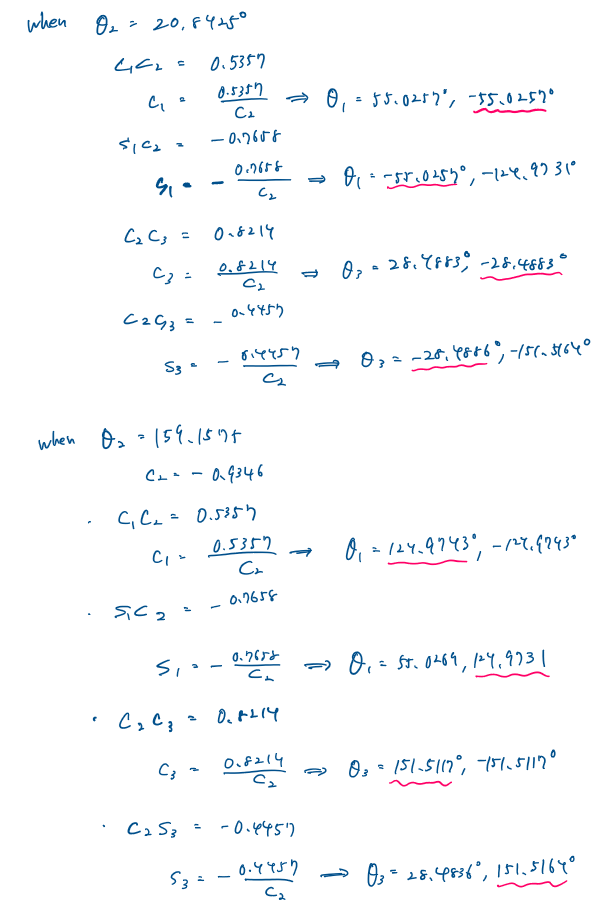 when θ₂ = 20.8425°
C₁C₂ = 0.5357
C₁ = 0.5357/C₂ ⇒ θ₁ = 55.0257°, -55.0257°
S₁C₂ = -0.7658
S₁ = - 0.7658/C₂ ⇒ θ₁ = -55.0257°, -124.9731°
C₂C₃ = 0.8214
C₃ = 0.8214/C₂ ⇒ θ₃ = 28.4883°, -28.4883°
C₂S₃ = - 0.4457
S₃ = - 0.4457/C₂ ⇒ θ₃ = -28.4886°, -151.5164°
when θ₂ = 159.1575
C₂ = - 0.9346
· C₁C₂ = 0.5357
C₁ = 0.5357/C₂ ⇒ θ₁ = 124.9743°, -124.9743°
· S₁C₂ = - 0.7658
S₁ = - 0.7658/C₂ ⇒ θ₁ = 55.0269, 124.9731
· C₂C₃ = 0.8214
C₃ = 0.8214/C₂ ⇒ θ₃ = 151.5117°, -151.5117°
· C₂S₃ = -0.4457
S₃ = - 0.4457/C₂ ⇒ θ₃ = 28.4836°, 151.5164°